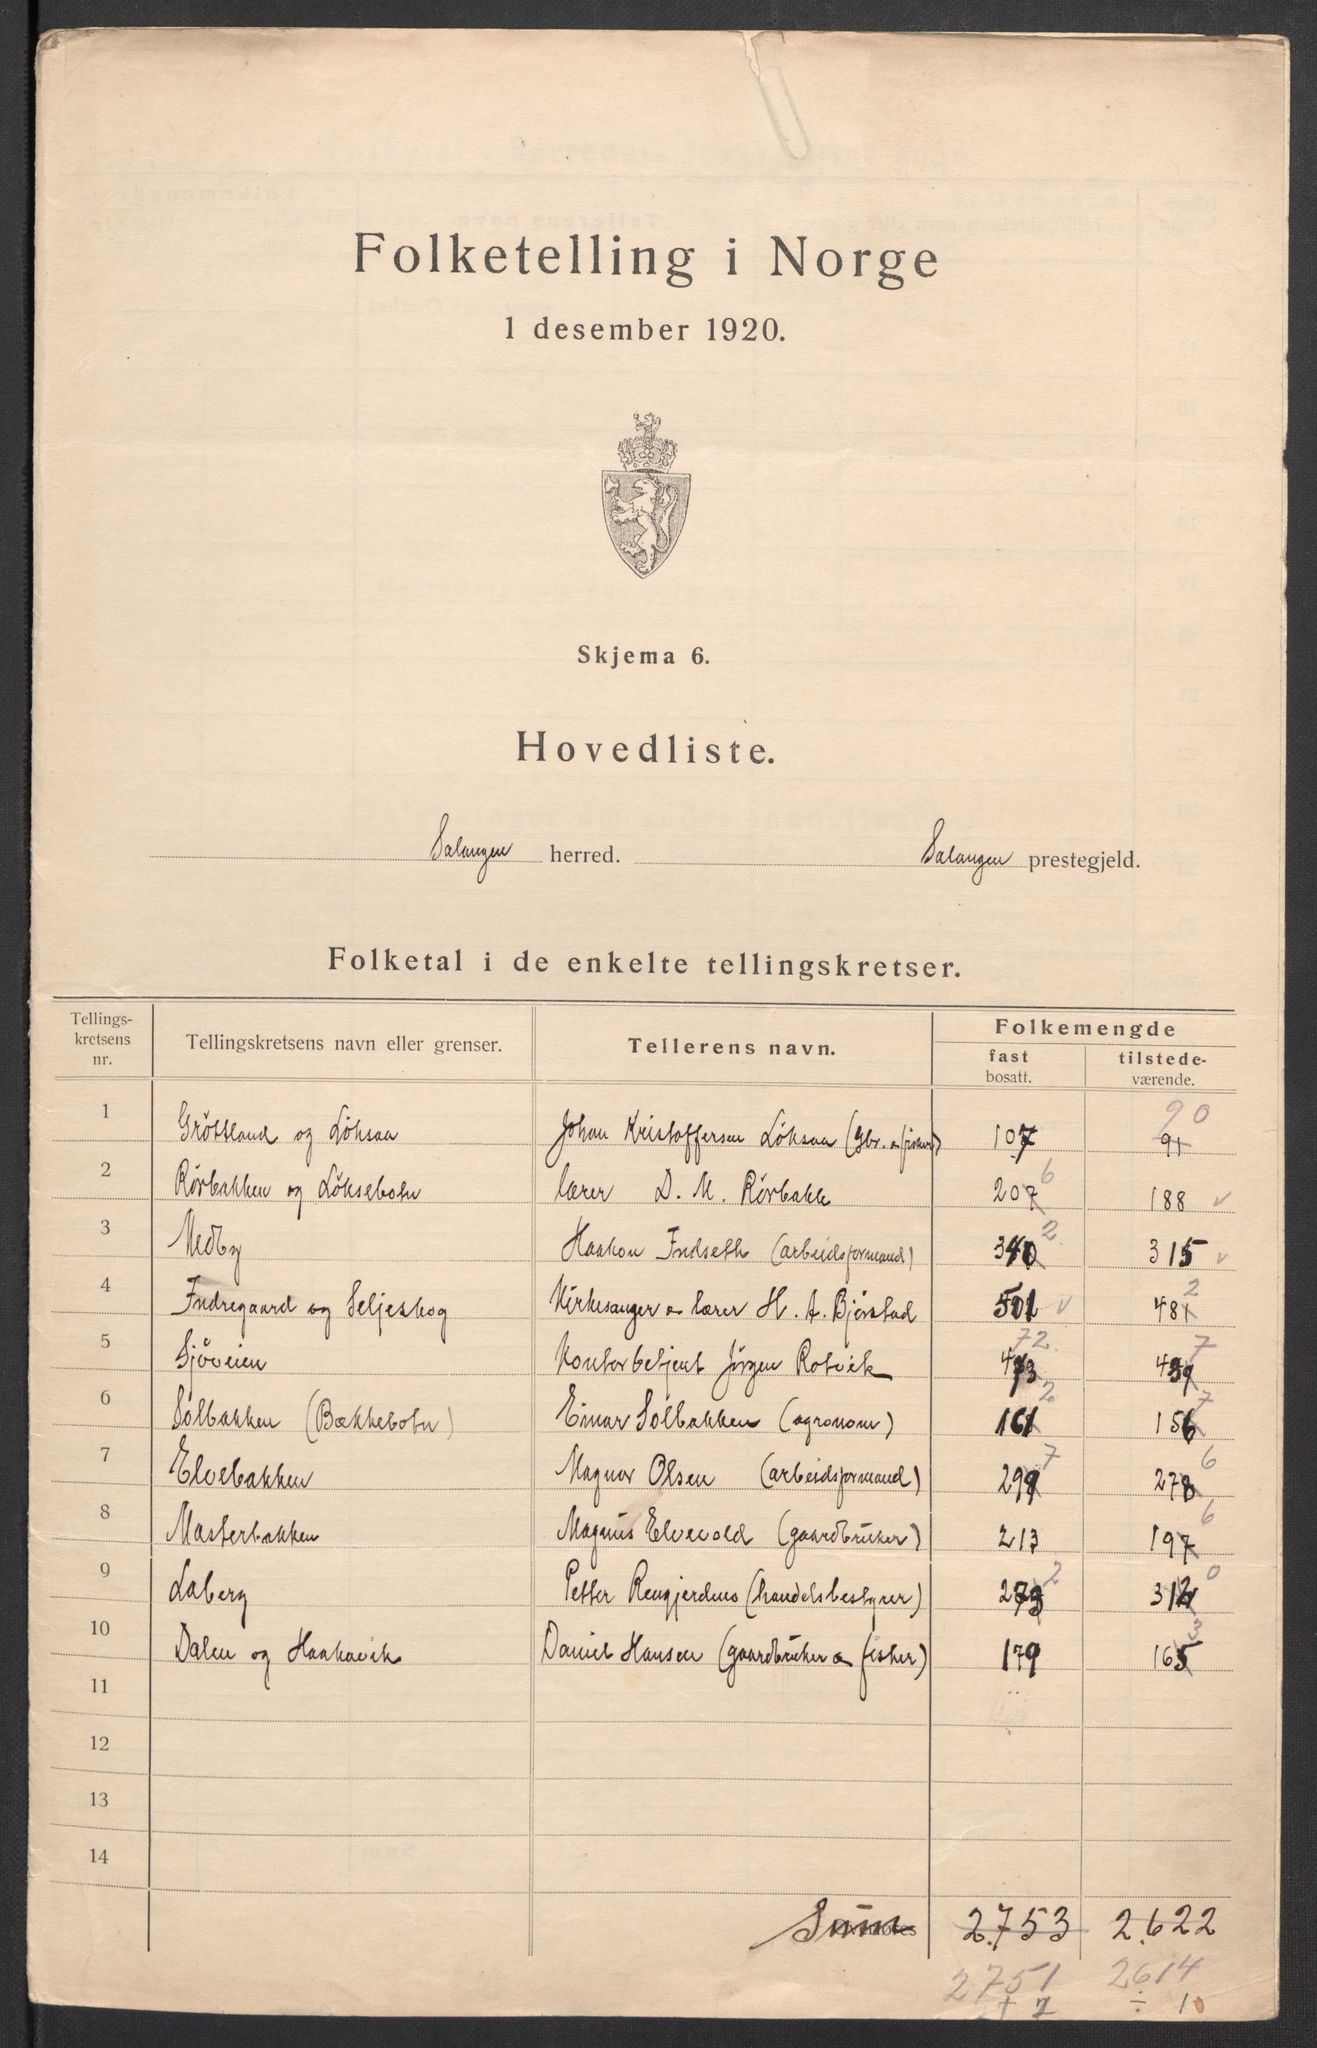 Folketelling i Norge
1 desember 1920.
Skjema 6.
Hovedliste.
Salangen herred. Salangen prestegjeld.
Folketal i de enkelte tellingskretser.
Tellings-kretsens nr. Tellingskretsens navn eller grenser. Tellerens navn. Folkemengde
fast bosatt. tilstede-værende.
90
1 Gröttland og Löksaa Johan Kristoffersen Löksaa (gbr. o fisker) 107 91
6
2 Rörbakken og Löksebotn lærer D. M. Rörbakk 207 188 v
2
3 Medby Haakon Indseth (arbeidsformand) 340 315 v
2
4 Indregaard og Seljeskog Kirkesanger o lærer H. A. Bjørstad 501 v 481
72 7
5 Sjöveien Kontorbetjent Jörgen Rotvik 473 439
2 7
6 Solbakken (Bækkebotn) Einar Solbakken (agronom) 161 156
7 6
7 Elvebakken Magnor Olsen (arbeidsformand) 299 278
6
8 Masterbakken Magnus Elvevold (gaardbruker) 213 197
2 0
9 Laberg Petter Rengjerdens (handelsbestyrer) 273 312
3
10 Dalen og Haakavik Daniel Hansen (gaardbruker o fisker) 179 165
11
12
13
14
Sum 2.753 2.622
2751 2614
+ 7 ÷ 10